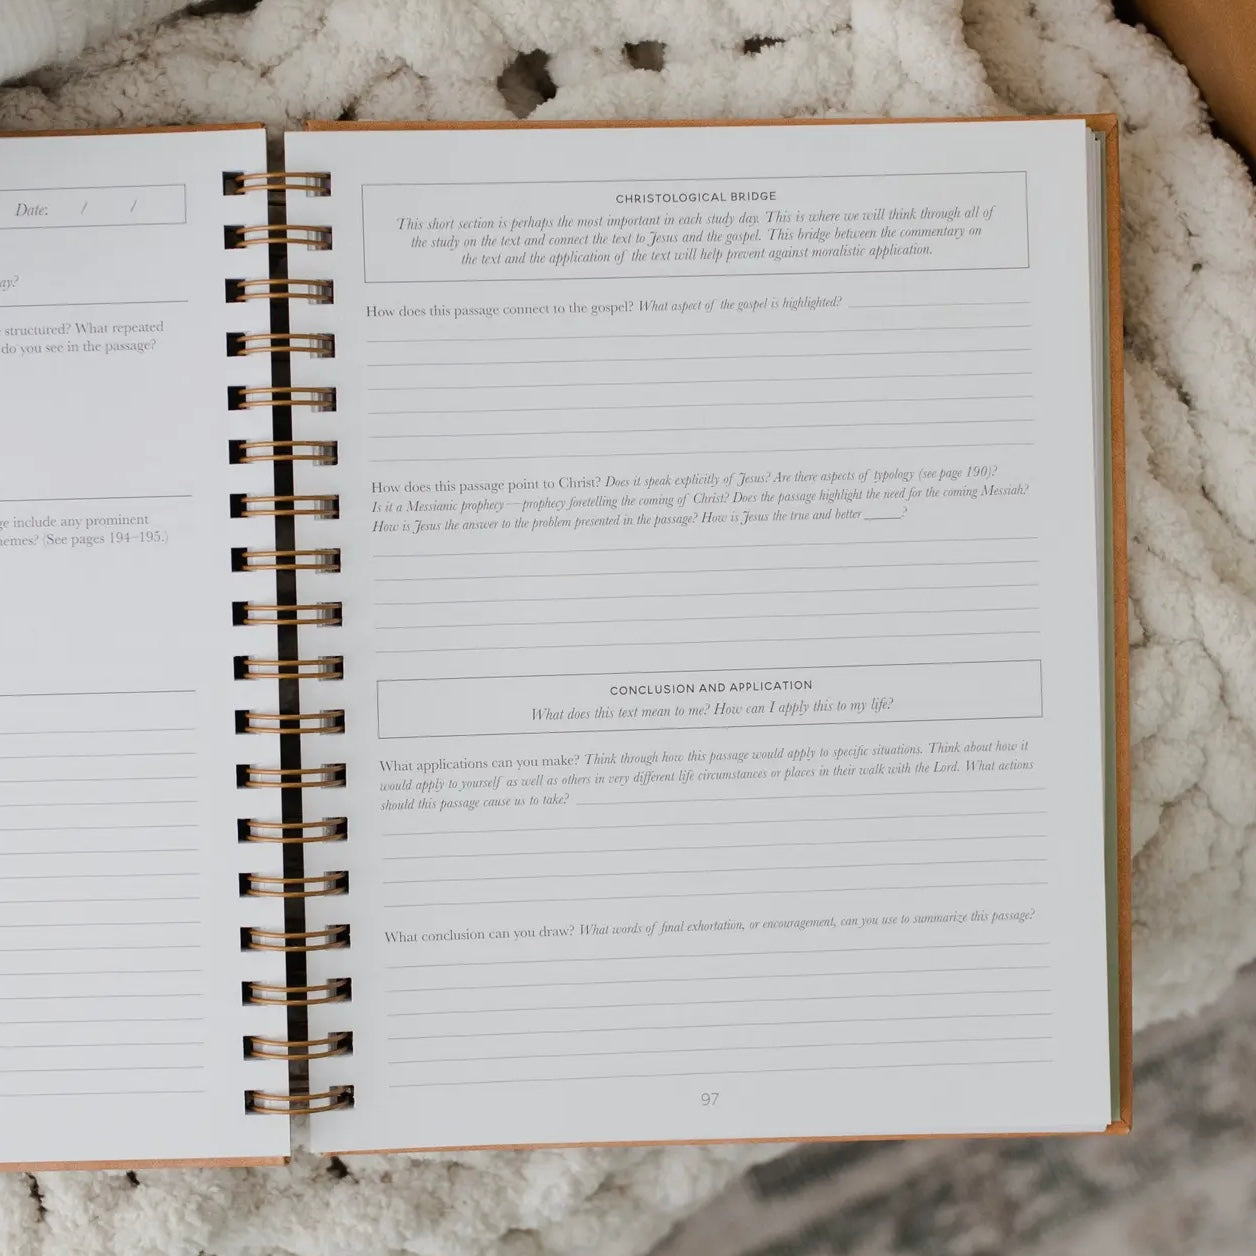 Date: / /
ay?
structured? What repeated
do you see in the passage?
ge include any prominent
hemes? (See pages 194–195.)
CHRISTOLOGICAL BRIDGE
This short section is perhaps the most important in each study day. This is where we will think through all of
the study on the text and connect the text to Jesus and the gospel. This bridge between the commentary on
the text and the application of the text will help prevent against moralistic application.
How does this passage connect to the gospel? What aspect of the gospel is highlighted?
How does this passage point to Christ? Does it speak explicitly of Jesus? Are there aspects of typology (see page 190)?
Is it a Messianic prophecy—prophecy foretelling the coming of Christ? Does the passage highlight the need for the coming Messiah?
How is Jesus the answer to the problem presented in the passage? How is Jesus the true and better ______?
CONCLUSION AND APPLICATION
What does this text mean to me? How can I apply this to my life?
What applications can you make? Think through how this passage would apply to specific situations. Think about how it
would apply to yourself as well as others in very different life circumstances or places in their walk with the Lord. What actions
should this passage cause us to take?
What conclusion can you draw? What words of final exhortation, or encouragement, can you use to summarize this passage?
97